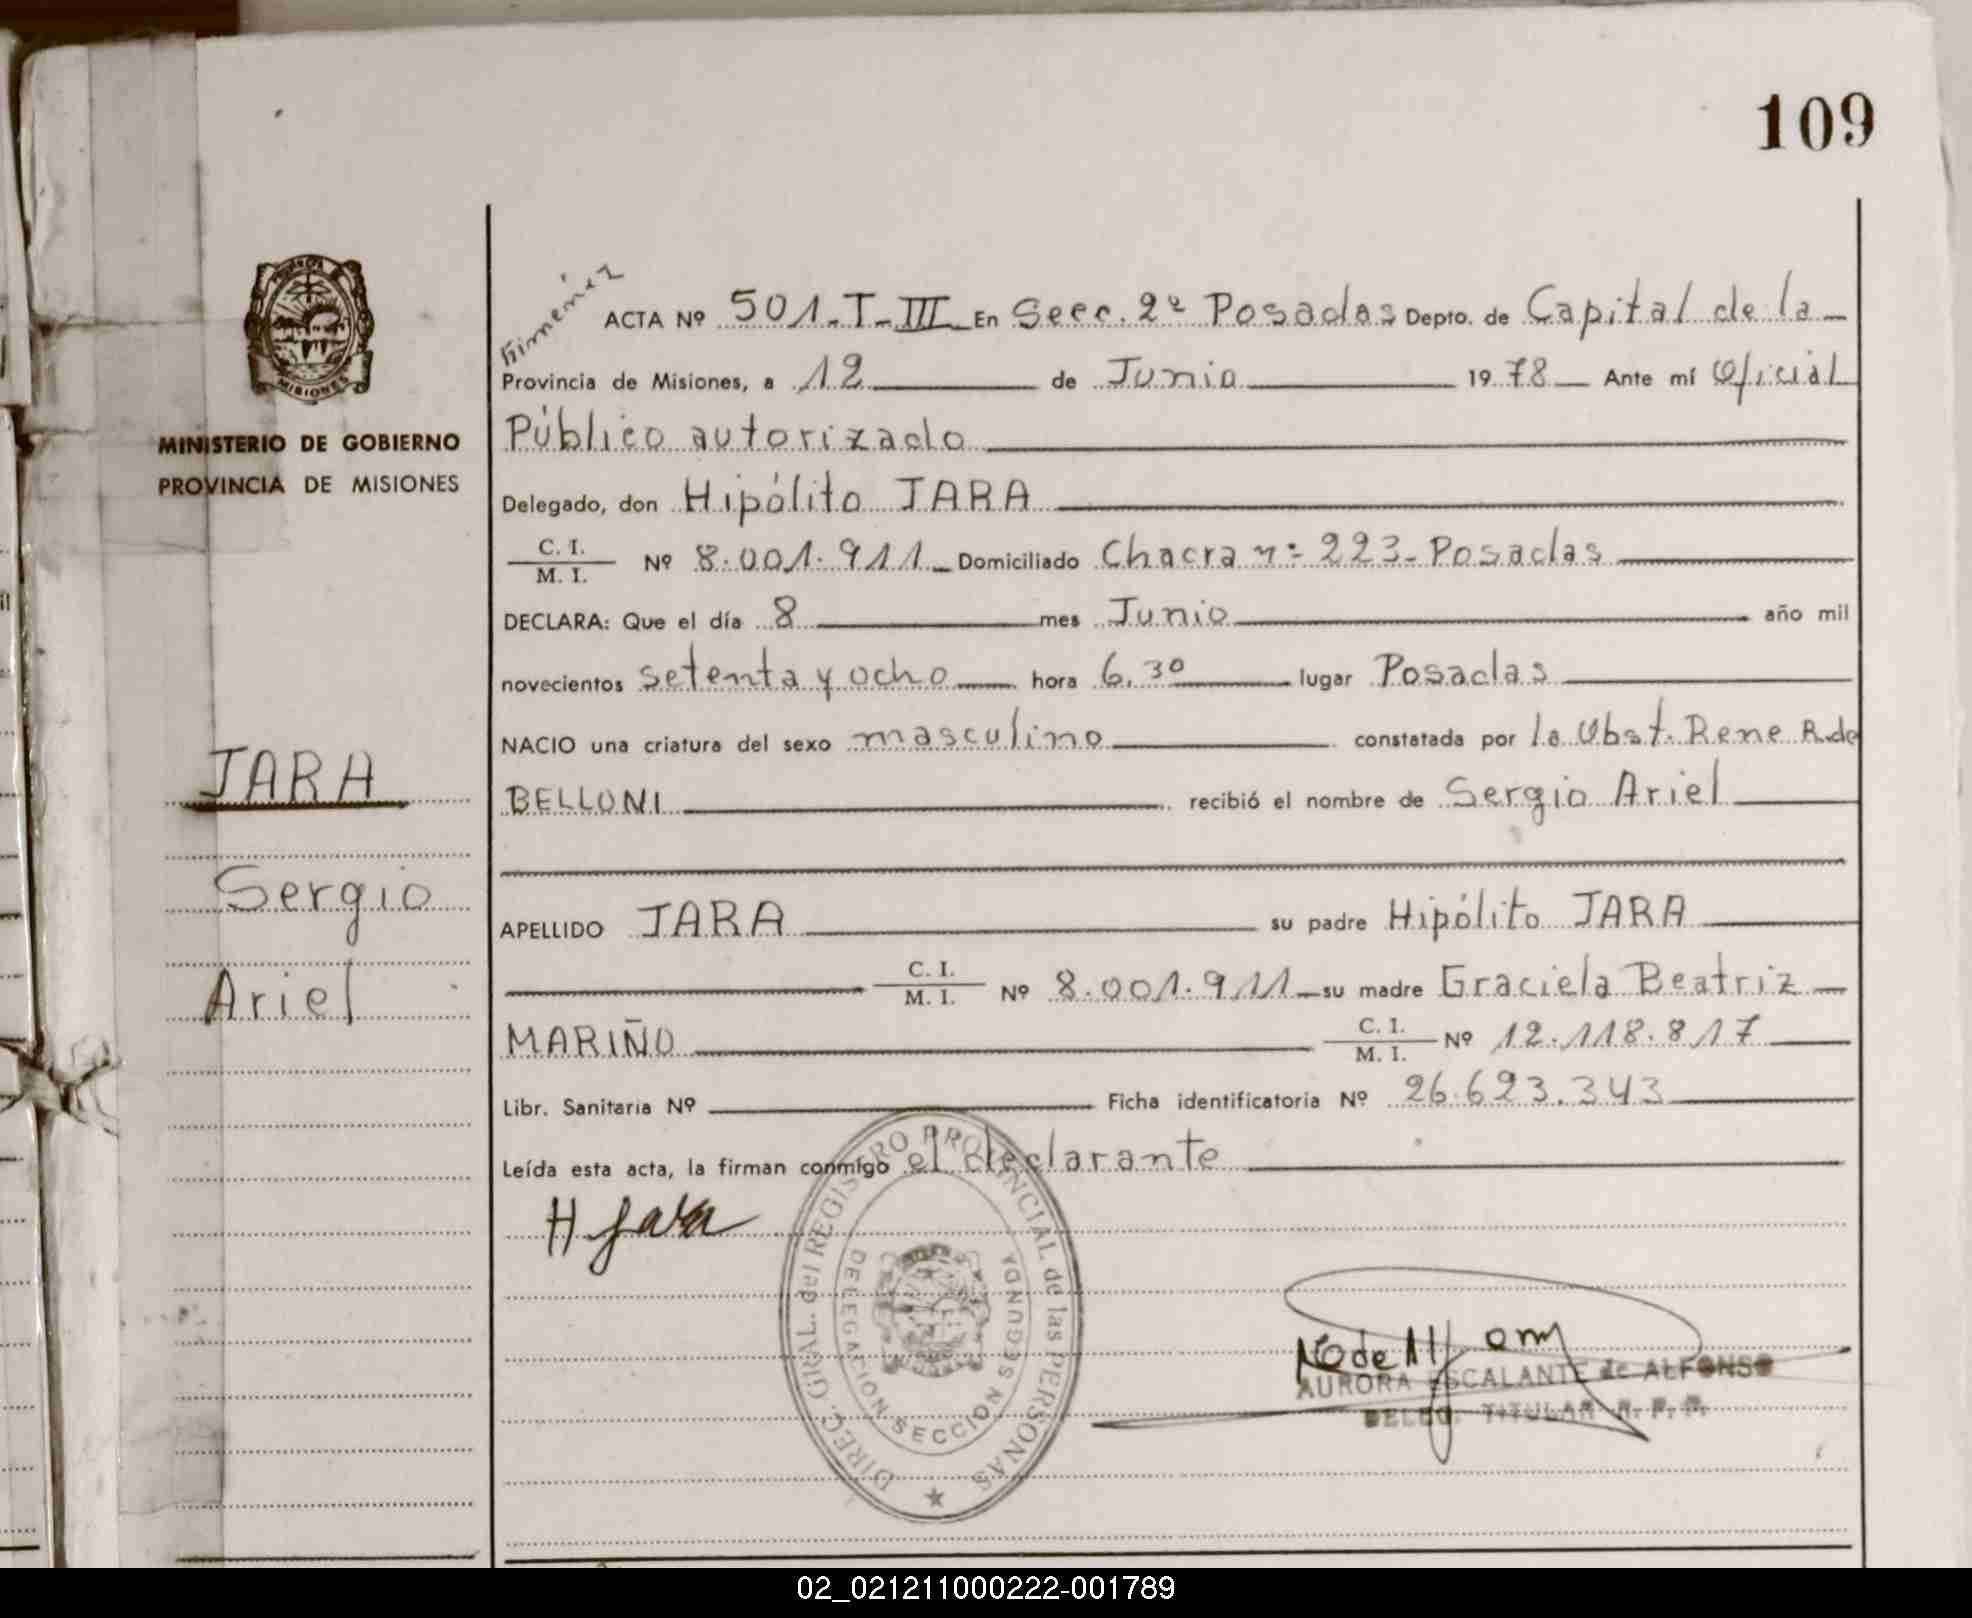 109
Gimenez
ACTA Nº 501-T-III En Secc. 2ª Posadas Depto. de Capital de la
Provincia de Misiones, a 12 de Junio 1978 Ante mí Oficial
Público autorizado
Delegado, don Hipólito JARA
C. I.
M. I. Nº 8.001.911 Domiciliado Chacra nº 223-Posadas
DECLARA: Que el día 8 mes Junio año mil
novecientos setenta y ocho hora 6,30 lugar Posadas
NACIO una criatura del sexo masculino constatada por la Obst. Rene R. de
BELLONI recibió el nombre de Sergio Ariel
APELLIDO JARA su padre Hipólito JARA
C. I.
M. I. Nº 8.001.911 su madre Graciela Beatriz
MARIÑO C. I.
M. I. Nº 12.118.817
Libr. Sanitaria Nº Ficha identificatoria Nº 26.623.343
Leída esta acta, la firman conmigo el declarante
H Jara
DIREC. GRAL. del REGISTRO PROVINCIAL de las PERSONAS
DELEGACION SECCION SEGUNDA
AURORA ESCALANTE de ALFONSO
DELEG. TITULAR R. P. P.
PROVINCIA
MISIONES
MINISTERIO DE GOBIERNO
PROVINCIA DE MISIONES
JARA
Sergio
Ariel
02_021211000222-001789